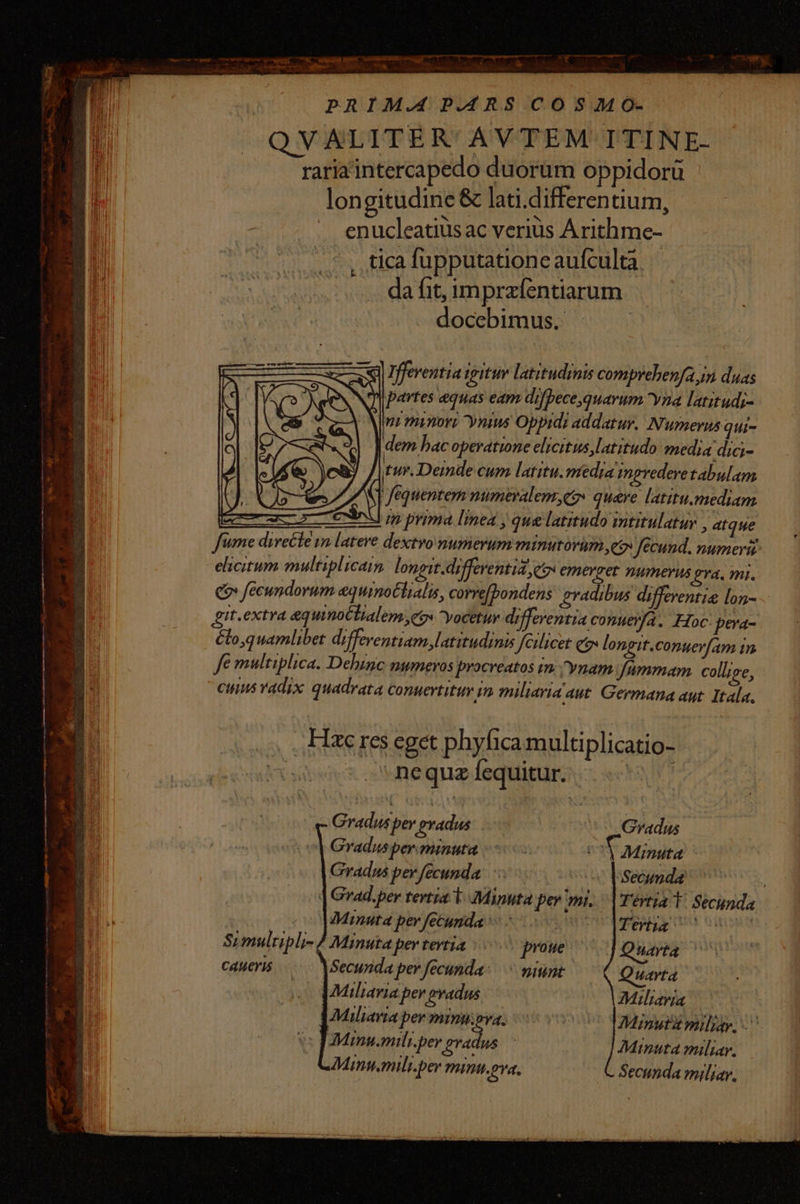 PRIMA PARS COSMO-
QVALITER AVTEM ITINE-
raria intercapedo duorum oppidorū
longitudine & lati.differentium,
enucleatiùs ac veriùs Arithme-
tica ſupputatione auſcultā
da ſit, impræſentiarum
docebimus.
Ifferentia igitur latitudinis comprehenſa, in duas
partes æquas eam diſpece, quarum vna latitudi-
ni minori vnius Oppidi addatur. Numerus qui-
dem hac operatione elicitus, latitudo media dici-
tur. Deinde cum latitu. media ingredere tabulam
ſequentem numeralem, & quære latitu. mediam
in prima linea, quæ latitudo intitulatur, atque
ſume directè in latere dextro numerum minutorum, & ſecund. numerū
elicitum multiplica in longit. differentiā, & emerget numerus gra. mi.
& ſecundorum æquinoctialis, correſpondens gradibus differentiæ lon-
git. extra æquinoctialem, & vocetur differentia conuerſa. Hoc pera-
cto, quamlibet differentiam, latitudinis ſcilicet & longit. conuerſam in
ſe multiplica. Dehinc numeros procreatos in vnam ſummam collige,
cuius radix quadrata conuertitur in miliaria aut Germana aut Itala.
Hæc res eget phyſica multiplicatio-
ne quæ ſequitur.
Gradus per gradus Gradus
Gradus per minuta Minuta
Gradus per ſecunda Secunda
Grad. per tertia t Minuta per mi. Tertia t Secunda
Minuta per ſecunda Tertia
Si multipli- Minuta per tertia proue Quarta
caueris Secunda per ſecunda niunt Quarta
Miliaria per gradus Miliaria
Miliaria per minu. gra. Minuta miliar.
Minu. mili. per gradus Minuta miliar.
Minu. mili. per minu. gra. Secunda miliar.